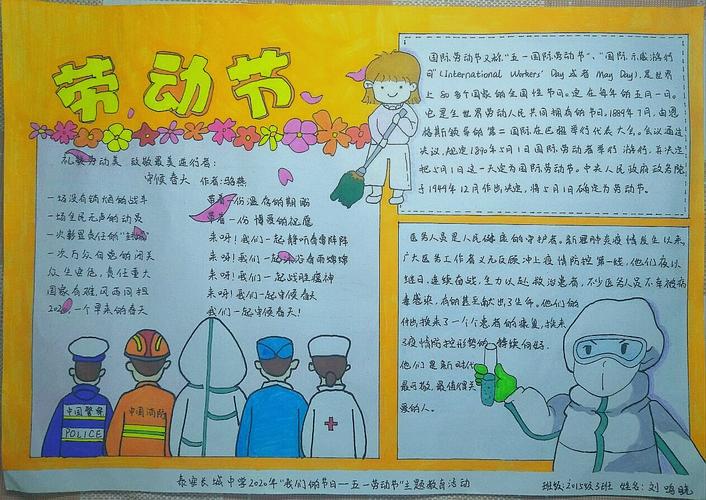 劳动节
礼赞劳动美 致敬最美逆行者:
守候春天 作者:骆燕
一场没有硝烟的战斗
一场全民无声的动员
一次彰显责任的"封城"
一次万众自觉的闭关
众生皆危,责任重大
国家有难,风雨同担
2020,一个早来的春天
带着一份温存的期盼
带着一份博爱的祝愿
来呀!我们一起静听春雷阵阵
来呀!我们一起沐浴春雨绵绵
来呀!我们一起战胜瘟神
来呀!我们一起守候春天
我们!一起守候春天!
中国警察
POLICE
中国消防
国际劳动节又称"五一国际劳动节"、"国际示威游行
日"(International Workers' Day 或者 May Day),是世界
上80多个国家的全国性节日。定在每年的五月一日。
它是全世界劳动人民共同拥有的节日,1889年7月,由恩
格斯领导的第二国际在巴黎举行代表大会。会议通过
决议,规定1890年5月1日国际劳动者举行游行,并决定
把5月1日这一天定为国际劳动节。中央人民政府政务院
于1949年12月作出决定,将5月1日确定为劳动节。
医务人员是人民健康的守护者。新冠肺炎疫情发生以来,
广大医务工作者义无反顾冲上疫情防控第一线,他们夜以
继日,连续奋战,全力以赴救治患者,不少医务人员不幸被病
毒感染,有的甚至献出了生命。他们的
付出换来了一个个患者的康复,换来
了疫情防控形势的持续向好。
他们是新时代
最可敬、最值得关
爱的人。
泰安长城中学2020年"我们的节日—五一劳动节"主题教育活动
班级:2015级3班 姓名:刘鸣晓